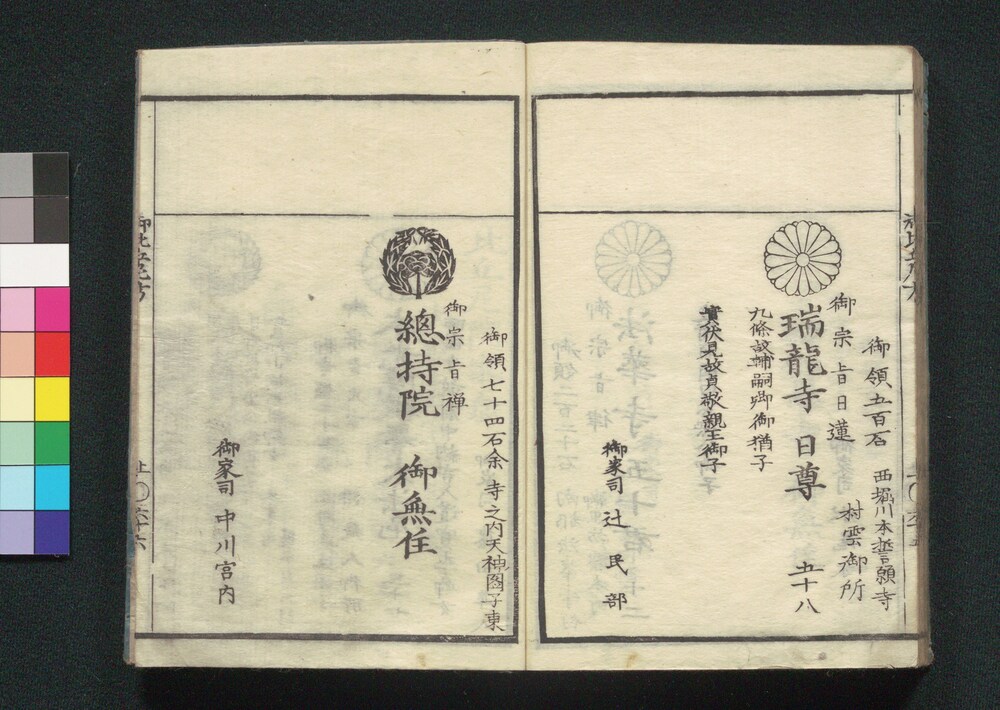 御領五百石 西堀川本誓願寺
御宗旨日蓮 村雲御所
瑞龍寺 日尊 五十八
九條故輔嗣卿御猶子
實伏見故貞敬親王御子
御家司 辻民部
御領七十四石余 寺之内天神圖子東
御宗旨禅
總持院 御無住
御家司 中川宮内
上 ○ 六十六